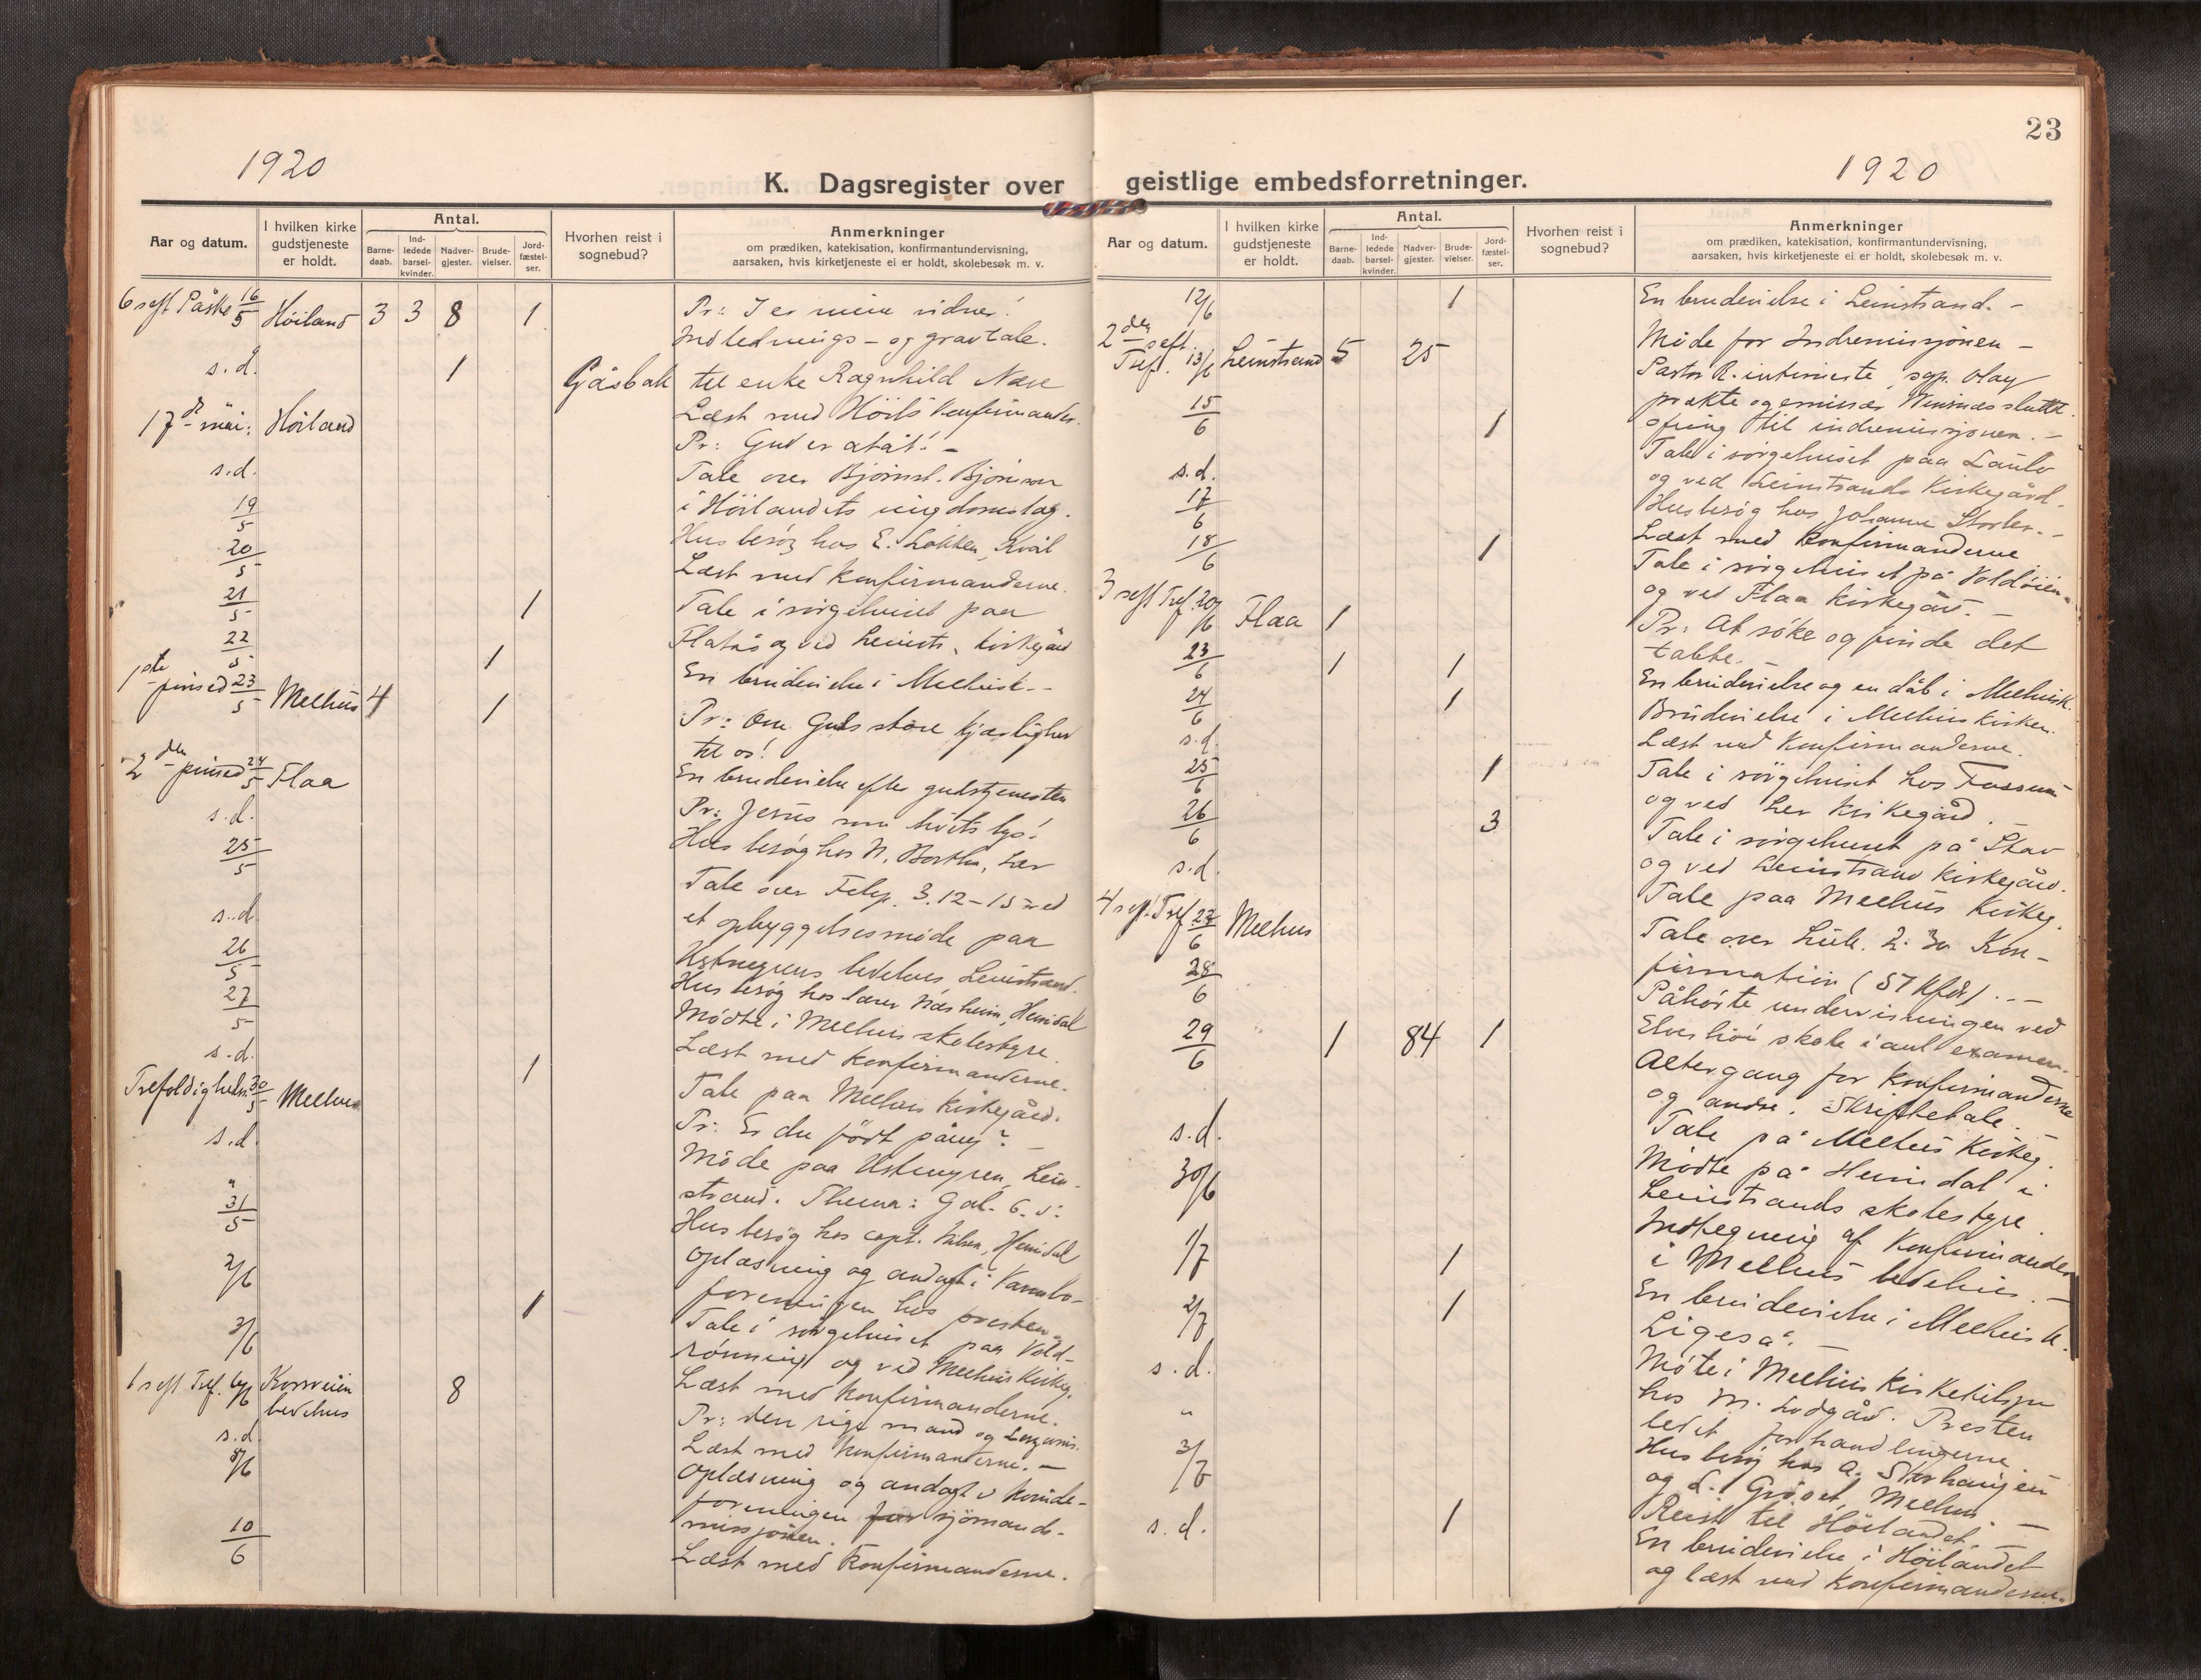 1920
K. Dagsregister over
Aar og datum.
I hvilken kirke gudstjeneste er holdt.
Antal.
Barne-daab.
Ind-ledede barsel-kvinder.
Nadver-gjester.
Brude-vielser.
Jord-fæstel-ser.
Hvorhen reist i sognebud?
Anmerkninger
om prædiken, katekisation, konfirmantundervisning,
aarsaken, hvis kirketjeneste ei er holdt, skolebesøk m. v.
6 s eft Påske 16/5 Höiland 3 3 8 1 Pr: I er mine vidner!
Indlednings- og gravtale.
s. d. 1 Gåsbak til enke Ragnhild
Læst med Höil's Konfirmander.
17de mai: Höiland Pr: Gud er
s.d. Tale over Bjørnst. Bjørnson
i Höilandets ungdomslag.
19/5 Husbesøg hos E. Løkken, Kvål
20/5 Læst med Konfirmanderne.
21/5 1 Tale i sørgehuset paa
Flatås og ved Leinstr. kirkegård
22/5 1 En brudevielse i Melhusk. -
1ste pinsed 23/5 Melhus 4 1 Pr: Om Guds store kjærlighed
til os!
En brudevielse efter gudstjenesten
2den pinsed 24/5 Flaa Pr: Jesus som livets lys!
s.d. Husbesøg hos N. Borthen, Ler
25/5 Tale over Filip. 3. 12-15 ved
et opbyggelsesmøde paa
Ustmyrens bedehus Leinstrand.
s.d. Husbesøg hos lærer Næsheim, Heimdal
26/5 Mødte i Melhus skolestyre.
27/5 Læst med Konfirmanderne.
s.d. 1 Tale paa Melhus Kirkegård.
Trefoldighedss. 30/5 Melhus Pr: Er du født påny?
s.d. Møde paa Ustmyren, Lein-
strand. Thema: Gal. 6.
" Husbesøg hos capt. Nilsen, Heimdal
31/5 Oplæsning og andagt i
foreningen hos presten.
2/6 1 Tale i sørgehuset paa Vold-
rønning og ved Melhus Kirkeg.
3/6 Læst med Konfirmanderne.
1 s eft Tref. 6/6 Korsveien bedehus 8 Pr: den rige mand og Lazarus.
s.d. Læst med Konfirmanderne. -
8/6 Oplæsning og andagt i kvinde-
foreningen for sjömands-
missjonen.
10/6 Læst med Konfirmanderne.
23
1920
geistlige embedsforretninger.
Aar og datum.
I hvilken kirke gudstjeneste er holdt.
Antal.
Barne-daab.
Ind-ledede barsel-kvinder.
Nadver-gjester.
Brude-vielser.
Jord-fæstel-ser.
Hvorhen reist i sognebud?
Anmerkninger
om prædiken, katekisation, konfirmantundervisning,
aarsaken, hvis kirketjeneste ei er holdt, skolebesøk m. v.
12/6 1 En brudevielse i Leinstrand. -
2den s eft. Tref. 13/6 Leinstrand 5 25 Møde for Indremissjonen -
Pastor R. sgp. Olay
prækte og emissær sluttet.
ofring til indremissjonen. -
15/6 1 Tale i sørgehuset paa
og ved Leinstrands Kirkegård.
s.d. Husbesøg hos Johanna -
17/6 Læst med Konfirmanderne
18/6 1 Tale i sørgehuset på Voldöien
og ved Flaa Kirkegård. -
3 s eft Tref. 20/6 Flaa 1 Pr: At søke og finde det
tabte. -
23/6 1 1 En brudevielse og en dåb i Melhusk.
24/6 1 Brudevielse i Melhus kirken.
s.d. Læst med Konfirmanderne.
25/6 1 Tale i sørgehuset hos Fossum
og ved Ler Kirkegård. -
26/6 3 Tale i sørgehuset på Skav
og ved Leinstrand Kirkegård.
s.d. Tale paa Melhus Kirkeg.
4 s eft Tref 27/6 Melhus Tale over Luk. 2. 30 Kon-
firmation (57 Kfdr). -
28/6 Påhørte undervisningen ved
skole i anl examen.
29/6 1 84 1 Altergang for Konfirmanderne
og andre. Skriftetale. -
s.d. Tale på Melhus Kirkeg.
30/6 Mødte på Heimdal i
Leinstrands skolestyre
1/7 1 Indtegning af Konfirmander
i Melhus bedehus. -
En brudevielse i Melhus k.
2/7 1 Ligeså.
s.d. Møte i Melhus
hos M. Lodgård. Presten
ledet forhandlingerne.
" Husbesøg hos A. Storhaugen
og L. Melhus
3/7 Reist til Höilandet. -
s.d. 1 En brudevielse i Höilandet
og læst med Konfirmanderne.